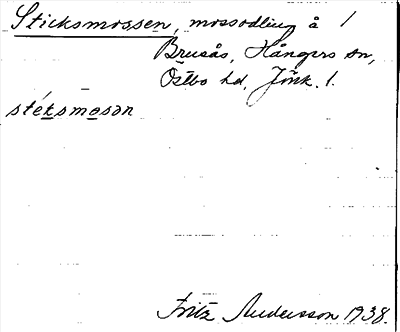 Sticksmossen, mossodling å 1
Brusås, Hångers sn,
Östbo hd, Jönk. l.
stéksmosọn
Fritz Andersson 1938.